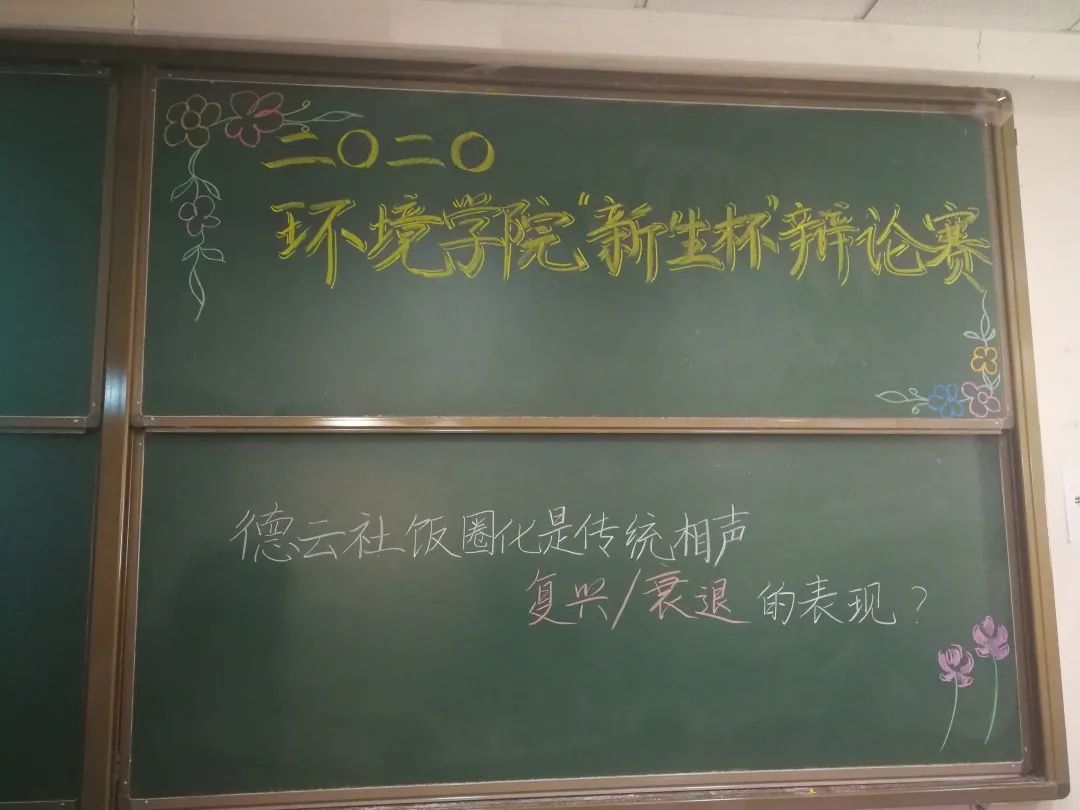 二〇二〇
环境学院“新生杯”辩论赛
德云社饭圈化是传统相声
复兴/衰退的表现?